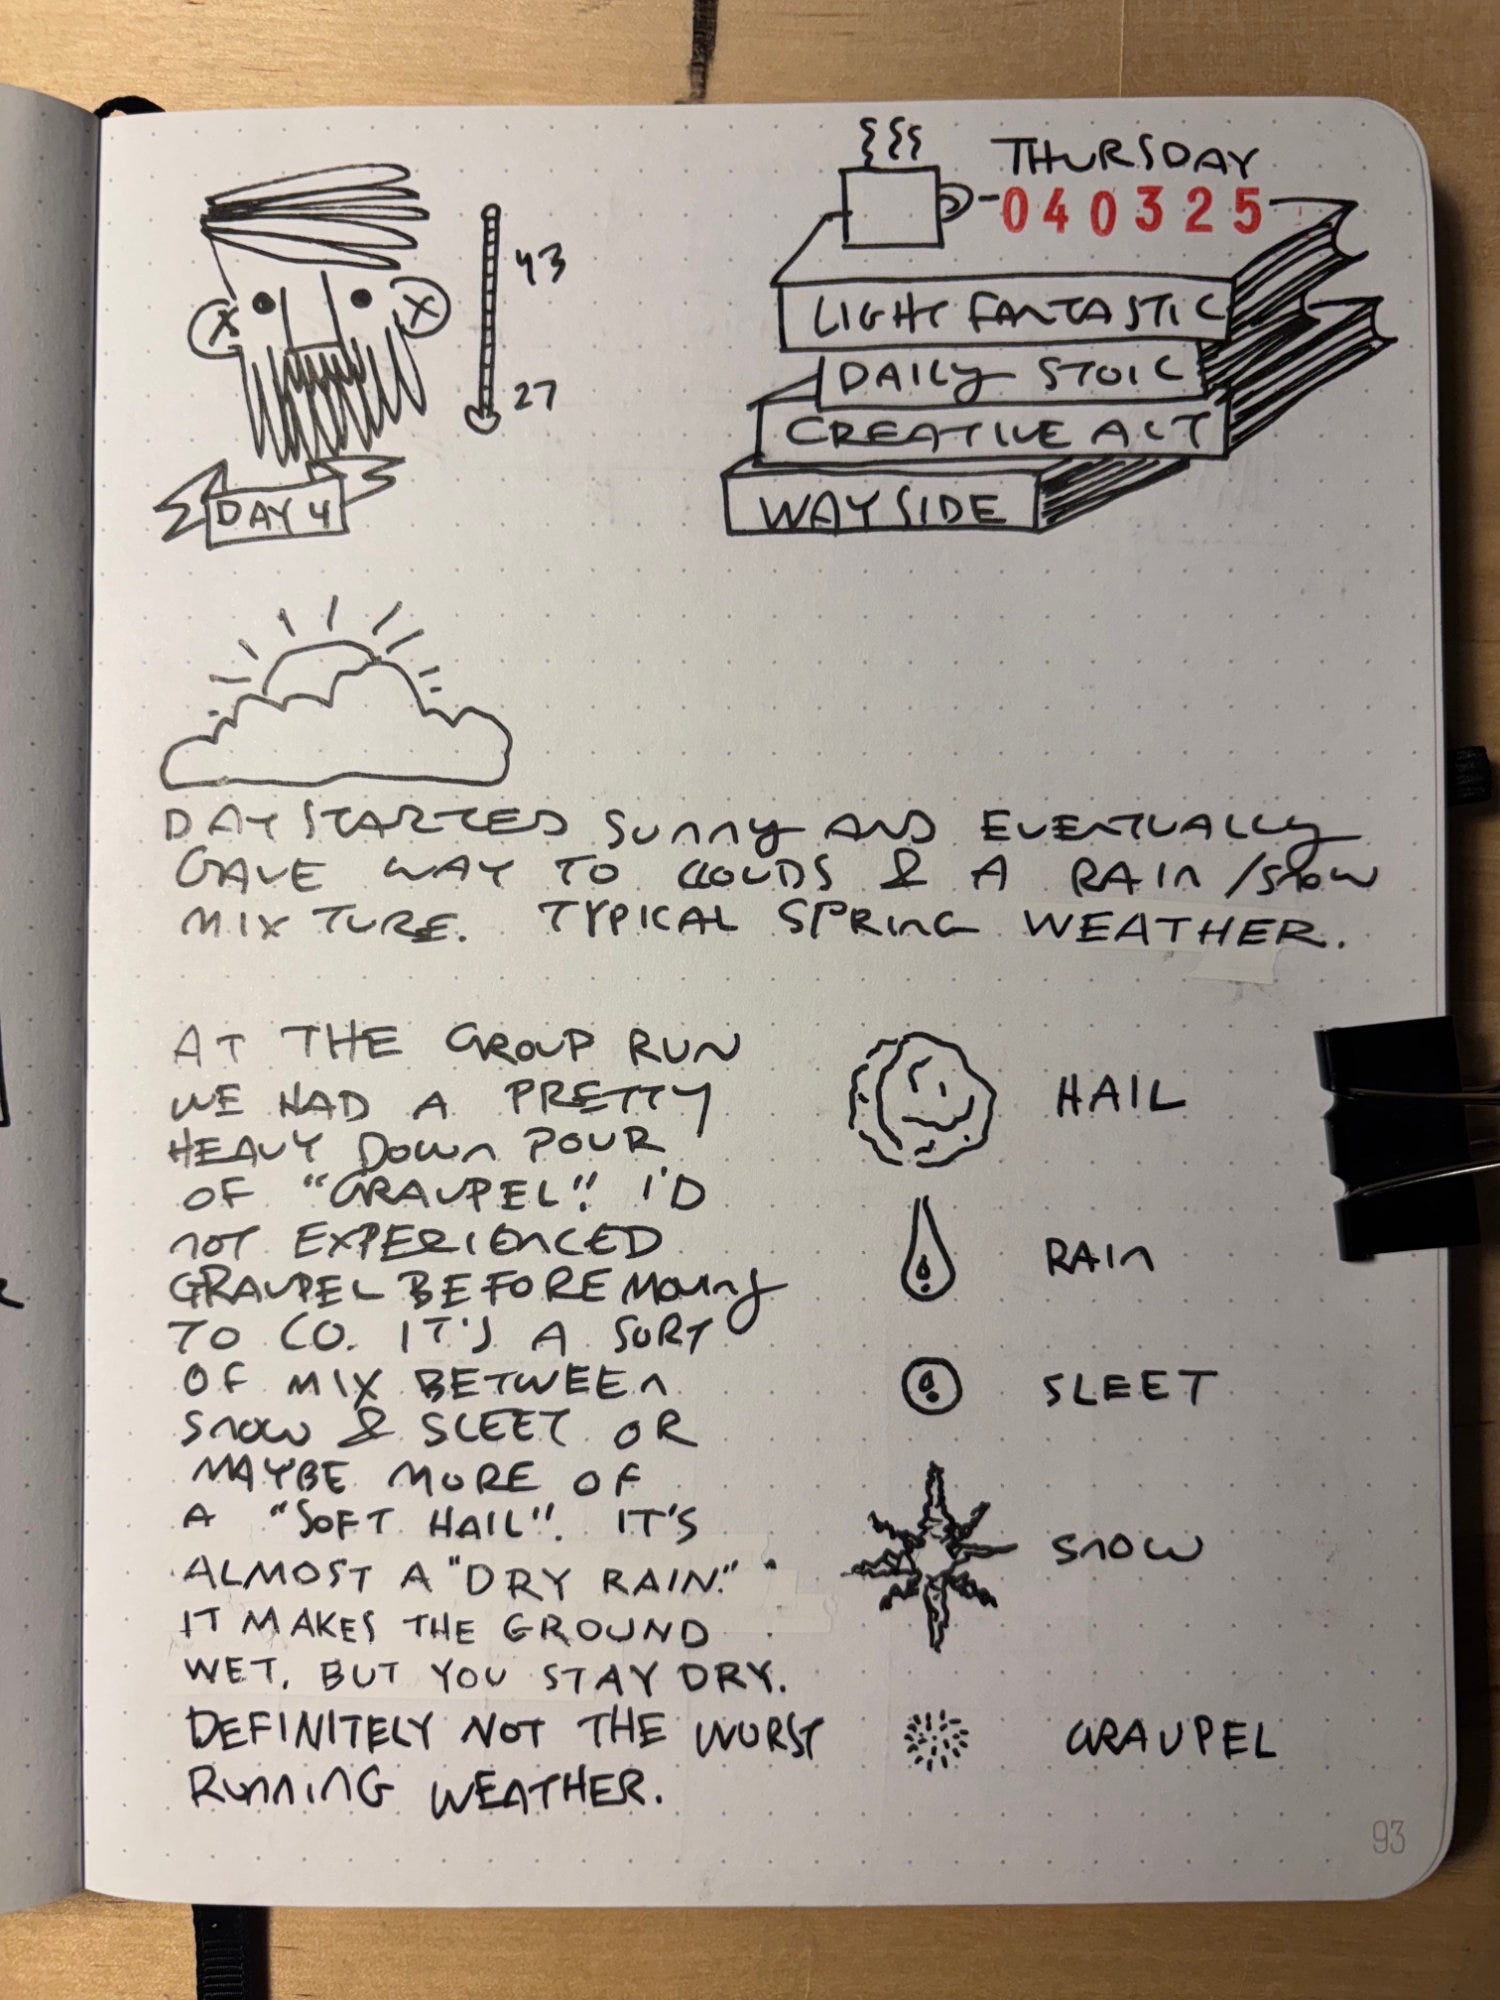 THURSDAY
040325
43
27
X X
LIGHT FANTASTIC
DAILY STOIC
CREATIVE ACT
WAYSIDE
DAY 4
DAY STARTED SUNNY AND EVENTUALLY
GAVE WAY TO CLOUDS & A RAIN/SNOW
MIXTURE. TYPICAL SPRING WEATHER.
AT THE GROUP RUN
WE HAD A PRETTY
HEAVY DOWN POUR
OF "GRAUPEL". I'D
NOT EXPERIENCED
GRAUPEL BEFORE MOVING
TO CO. IT'S A SORT
OF MIX BETWEEN
SNOW & SLEET OR
MAYBE MORE OF
A "SOFT HAIL". IT'S
ALMOST A "DRY RAIN."
IT MAKES THE GROUND
WET, BUT YOU STAY DRY.
DEFINITELY NOT THE WORST
RUNNING WEATHER.
HAIL
RAIN
SLEET
SNOW
GRAUPEL
93